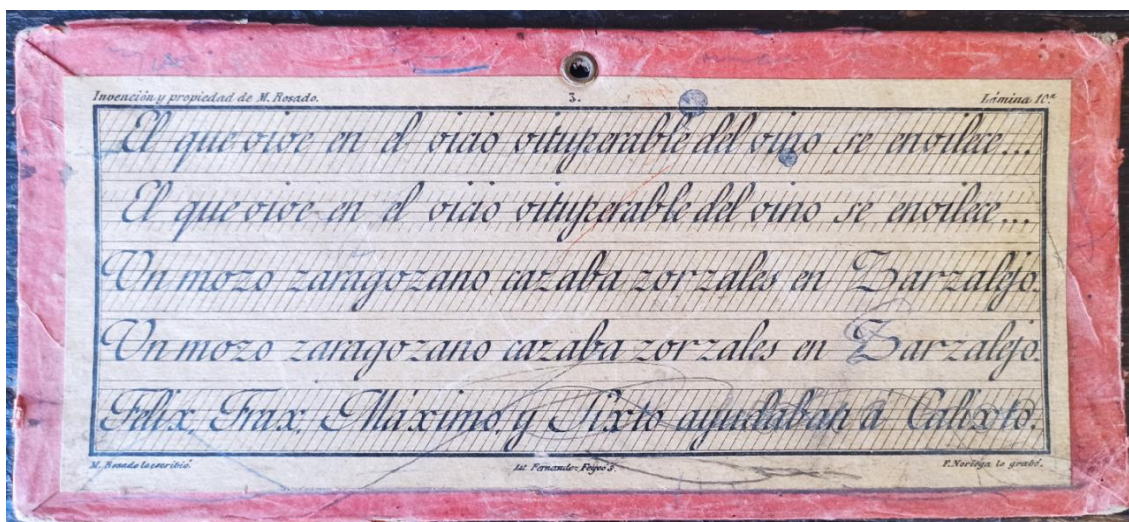 Invención y propiedad de M. Rosado. 3. Lámina 10.ª
El que vive en el vicio vituperable del vino se envilece...
El que vive en el vicio vituperable del vino se envilece...
Un mozo zaragozano cazaba zorzales en Zarzalejo.
Un mozo zaragozano cazaba zorzales en Zarzalejo.
Félix, Frax, Máximo, y Sixto ayudaban á Calixto.
M. Rosado lo escribió. Lit. Fernandez, Feijoó 3. F. Noriega lo grabó.